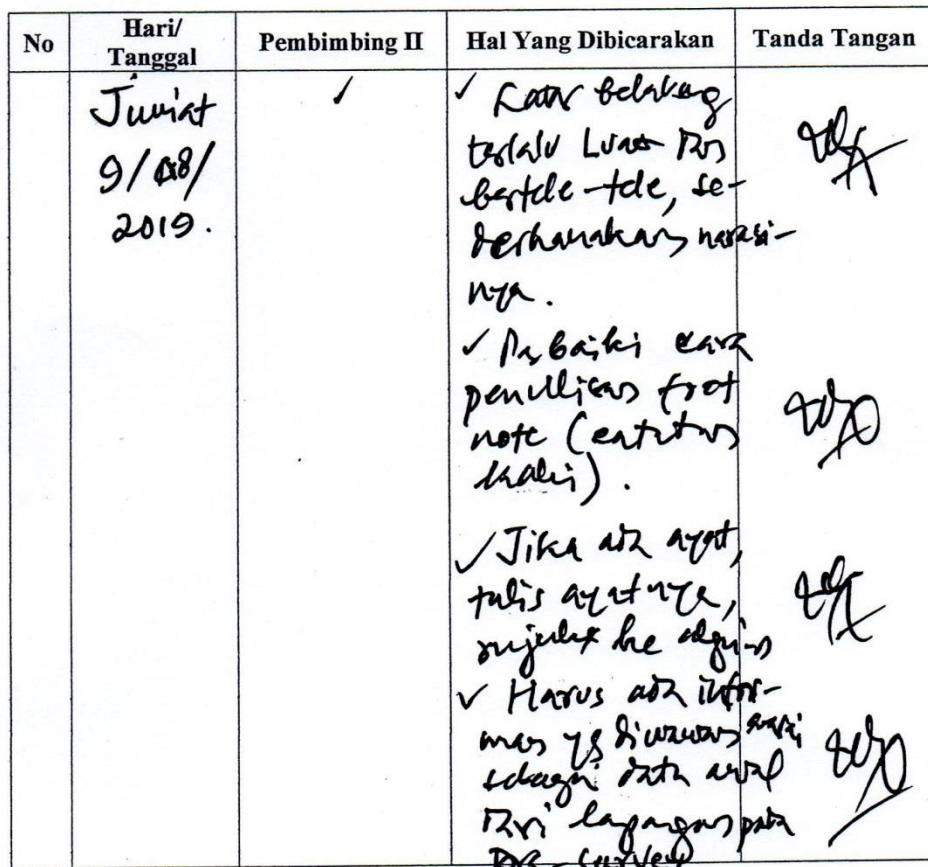 No
Hari/
Tanggal
Pembimbing II
Hal Yang Dibicarakan
Tanda Tangan
Jum'at
9/08/
2019.
✓
✓ Latar belakang
terlalu Luas Dan
bertele-tele, se-
derhanakan narasi-
nya.
✓ Perbaiki cara
penulisan foot
note (catatan
kaki).
✓ Jika ada ayat,
tulis ayatnya,
rujukan ke alqur'an
✓ Harus ada infor-
man yg diwawancarai
sebagai data awal
Dari lapangan pada
pra-survey